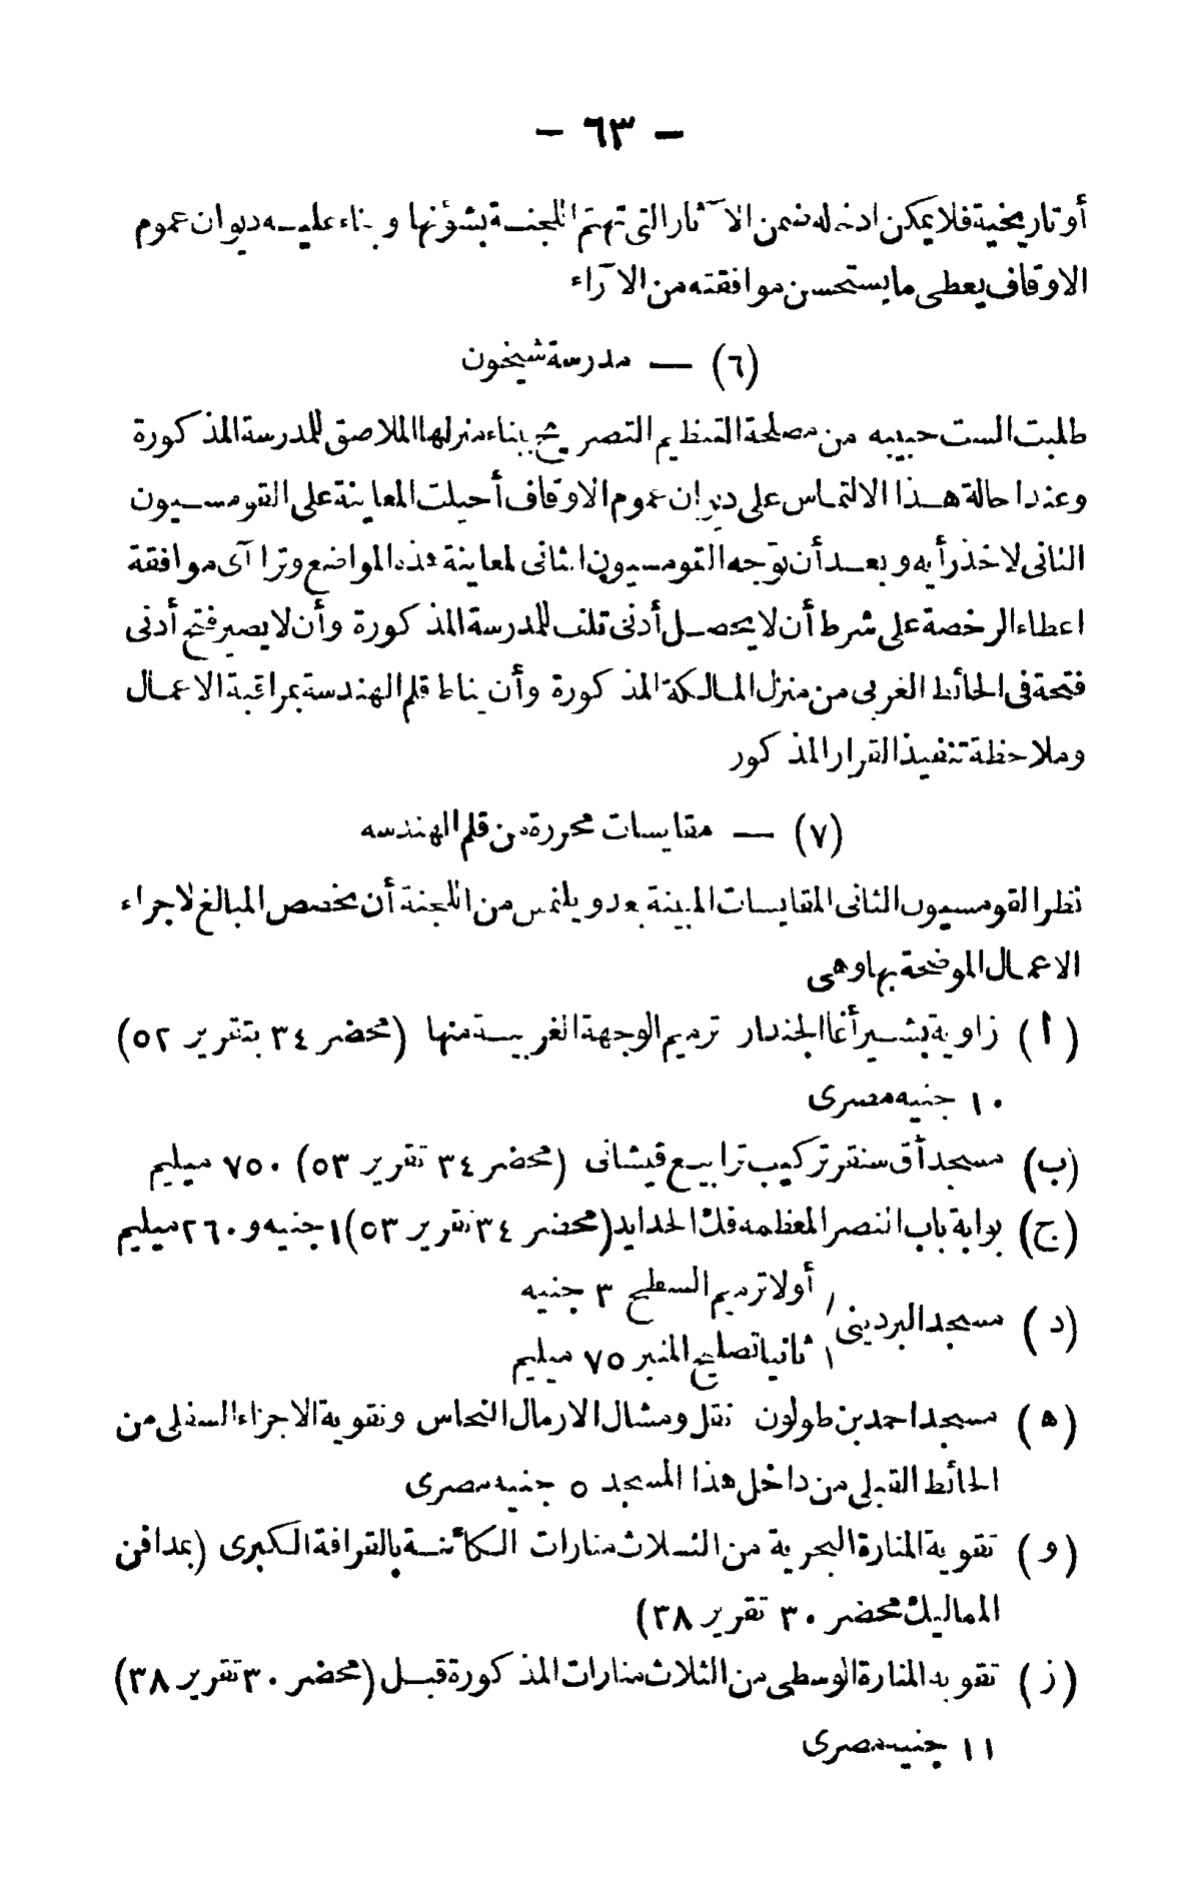 - ٦٣ -
أو تاريخية فلا يمكن ادخاله ضمن الآثار التى تهتم اللجنة بشؤنها وبناء عليه ديوان عموم
الاوقاف يعطى ما يستحسن موافقته من الآراء
(٦) — مدرسة شيخون
طلبت الست حبيبه من مصلحة التنظيم التصريح ببناء منزلها الملاصق للمدرسة المذكورة
وعند احالة هذا الالتماس على ديوان عموم الاوقاف أحيلت المعاينة على القومسيون
الثانى لاخذ رأيه وبعد أن توجه القومسيون الثانى لمعاينة هذه المواضع وتراآى موافقة
اعطاء الرخصة على شرط أن لا يحصل أدنى تلف للمدرسة المذكورة وأن لا يصير فتح أدنى
فتحة فى الحائط الغربى من منزل المالكة المذكورة وأن يناط قلم الهندسة بمراقبة الاعمال
وملاحظة تنفيذ القرار المذكور
(٧) — مقايسات محررة من قلم الهندسه
نظر القومسيون الثانى المقايسات المبينة بعد ويلتمس من اللجنة أن يخصص المبالغ لاجراء
الاعمال الموضحة بها وهى
(أ) زاوية بشير أغا الجندار ترميم الوجهة الغربية منها (محضر ٣٤ بتقرير ٥٢)
١٠ جنيه مصرى
(ب) مسجد أق سنقر تركيب ترابيع قيشانى (محضر ٣٤ تقرير ٥٣) ٧٥٠ ميليم
(ج) بوابة باب النصر المعظمه فك الحدايد (محضر ٣٤ تقرير ٥٣) ١ جنيه و ٢٦٠ ميليم
(د) مسجد البردينى أولا ترميم السطح ٣ جنيه
ثانيا تصليح المنبر ٧٥ ميليم
(ه) مسجد احمد بن طولون نقل ومشال الارمال النحاس وتقوية الاجزاء السفلى من
الحائط القبلى من داخل هذا المسجد ٥ جنيه مصرى
(و) تقوية المنارة البحرية من الثلاث منارات الكائنة بالقرافة الكبرى (بمدافن
المماليك محضر ٣٠ تقرير ٣٨)
(ز) تقويه المنارة الوسطى من الثلاث منارات المذكورة قبل (محضر ٣٠ تقرير ٣٨)
١١ جنيه مصرى